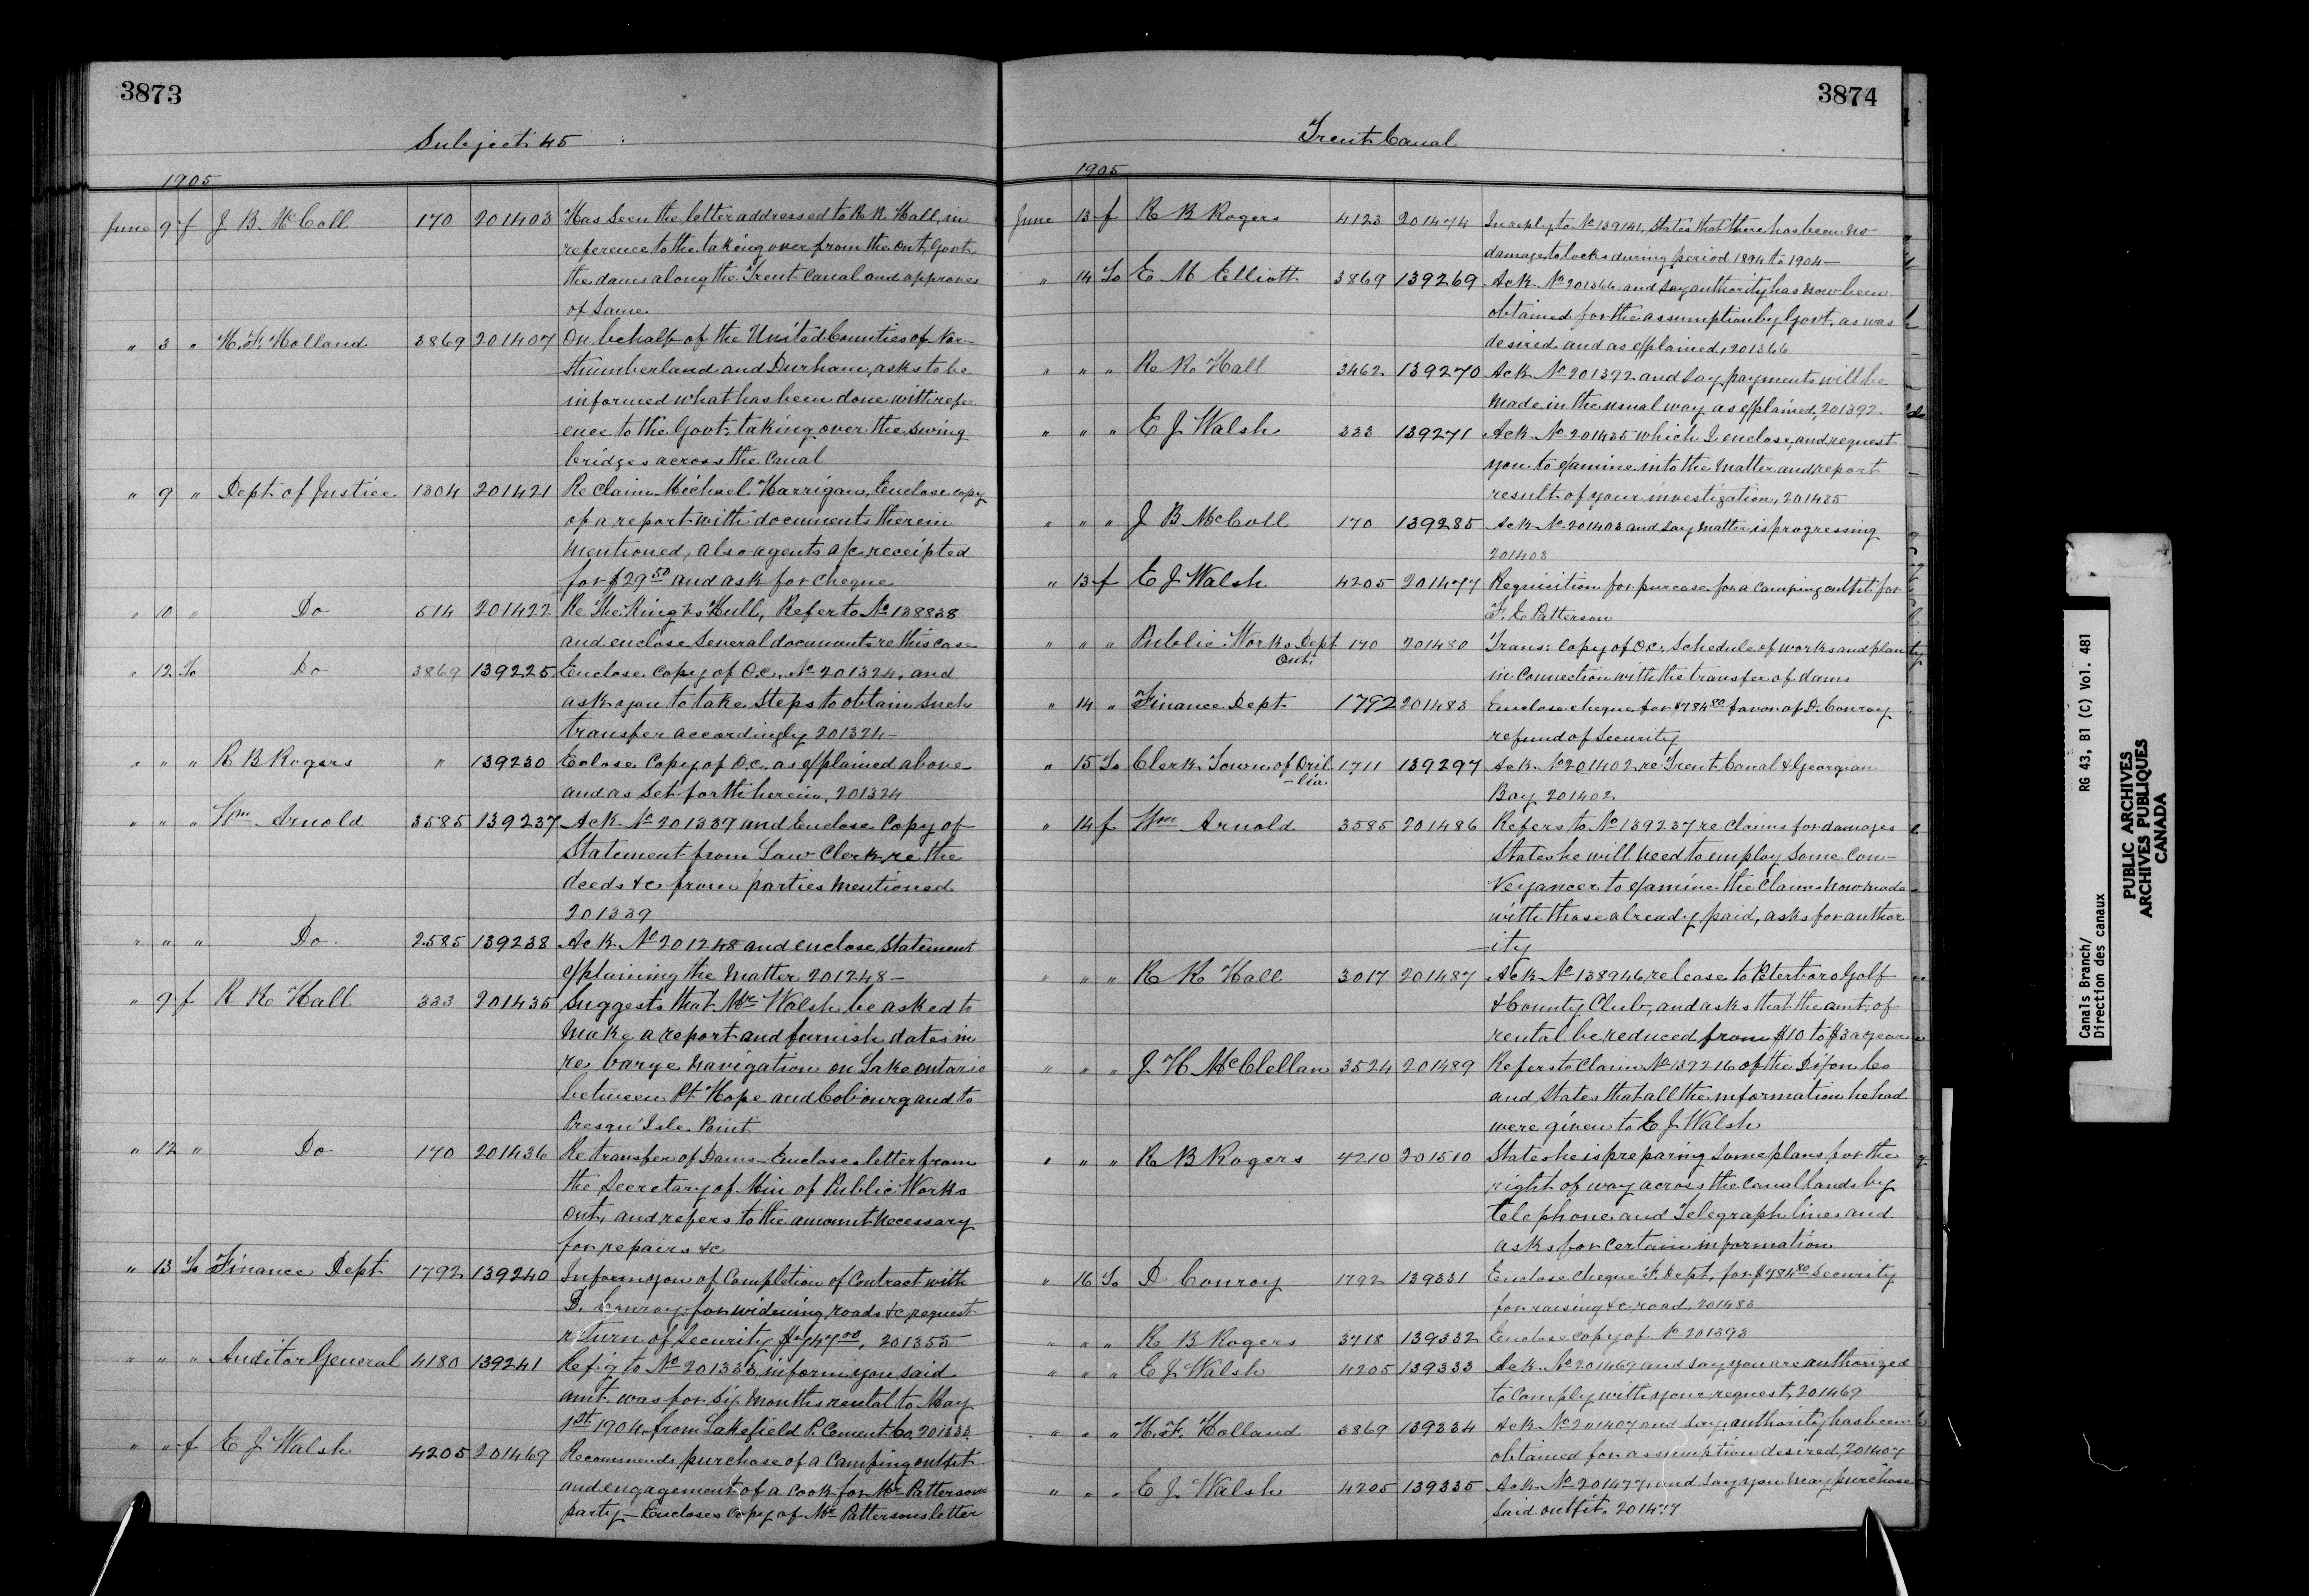 3873
Subject 45
1905
June 9 f J B McColl 170 201403 Has seen the letter addressed to R R Hall, in
reference to the taking over from the Ont. Govt.
the dams along the Trent Canal and approves
of same
" 3 " H. F. Holland 3869 201407 On behalf of the United Counties of Nor-
thumberland and Durham, asks to be
informed what has been done with refer-
ence to the Govt. taking over the swing
bridges across the Canal
" 9 " Dept. of Justice 1304 201421 Re claim Michael Harrigan, Enclose copy
of a report with documents therein
mentioned, also agents a/c receipted
for $29 50 and ask for cheque
" 10 " Do 614 201422 Re The King vs Hull, Refer to No 138838
and enclose several documents re this case
" 12 To Do 3869 139225 Enclose copy of O.C. No 201324, and
ask you to take steps to obtain such
transfer accordingly 201324—
" " " R B Rogers " 139230 Eclose Copy of O.C. as explained above
and as set forth herein, 201324
" " " Wm Arnold 3585 139237 Ack No 201339 and Enclose Copy of
Statement from Law Clerk, re the
deeds &c from parties mentioned
201339
" " " Do. 2585 139238 Ack No 201248 and enclose statement
explaining the matter 201248—
" 9 f R R Hall 333 201435 Suggests that Mr Walsh be asked to
make a report and furnish dates in
re barge navigation on Lake Ontario
between Pt. Hope and Cobourg and to
Presqu'Isle Point
" 12 " Do 170 201436 Re transfer of Dams—Encloses letter from
the Secretary of Min of Public Works
Ont, and refers to the amount necessary
for repairs &c
" 13 To Finance Dept 1792 139240 Inform you of Completion of Contract with
D. Conroy for widening roads &c request
return of Security $747 00, 201355
" " " Auditor General 4180 139241 Ref'g to No 201333, inform you said
amt. was for six months rental to May
1st 1904 from Lakefield P. Cement Co. 201333
" " f E J Walsh 4205 201469 Recommends purchase of a Camping outfit
and engagement of a cook for Mr Patterson's
party—Encloses Copy of Mr Pattersons letter
3874
Trent Canal
1905
June 13 f R B Rogers 4123 201474 In reply to No 139141, States that there has been no
damage to locks during period 1894 to 1904—
" 14 To E M Elliott 3869 139269 Ack No 201366 and say authority has now been
obtained for the assumption by Govt. as was
desired and as explained, 201366
" " " R R Hall 3462 139270 Ack No 201392 and say payments will be
made in the usual way as explained, 201392
" " " E J Walsh 333 139271 Ack No 201435 which I enclose, and request
you to examine into the matter and report
result of your investigation, 201435
" " " J B McColl 170 139285 Ack No 201403 and say matter is progressing
201403
" 13 f E J Walsh 4205 201477 Requisition for purcase for a camping outfit for
F. E Patterson
" " " Public Works Dept 170 201480 Trans: Copy of O.C. Schedule of works and plan
Ont. in connection with the transfer of dams
" 14 " Finance Dept 1792 201483 Enclose cheque for $784 80 favor of D. Conroy
refund of Security
" 15 To Clerk Town of Oril 1711 139297 Ack No 201402 re Trent Canal & Georgian
-lia. Bay 201402
" 14 f Wm Arnold 3585 201486 Refers to No 139237 re claims for damages
states he will need to employ some Con-
veyancer to examine the claims now made
with those already paid, asks for author
-ity
" " " R R Hall 3017 201487 Ack No 138946, re lease to Peterboro Golf
& County Club, and asks that the amt. of
rental be reduced from $10 to $3 a year
" " " J H McClellan 3524 201489 Refers to Claim No 139216 of the Dixon Co
and states that all the information he had
were given to E J Walsh
" " " R B Rogers 4210 201510 States he is preparing some plans for the
right of way across the canal lands by
telephone and Telegraph lines and
asks for certain information
" 16 To D Conroy 1792 139331 Enclose cheque F. Dept. for $784 80 Security
for raising &c road. 201483
" " " R B Rogers 3718 139332 Enclose copy of No 201393
" " " E J Walsh 4205 139333 Ack No 201469 and say you are authorized
to comply with your request, 201469
" " " H. F. Holland 3869 139334 Ack No 201407 and say authority has been
obtained for assumption desired, 201407
" " " E J Walsh 4205 139335 Ack No 201477, and say you may purchase
said outfit. 201477
Canals Branch/
Direction des canaux
RG 43, B1 (C) Vol. 481
PUBLIC ARCHIVES
ARCHIVES PUBLIQUES
CANADA